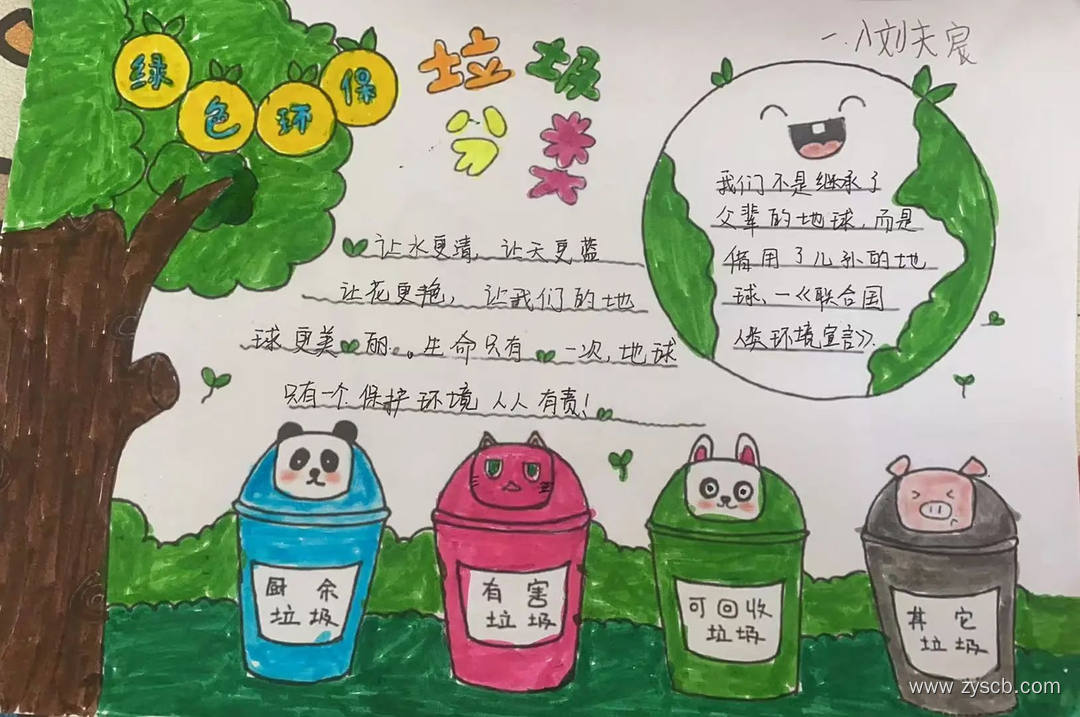 绿色环保
垃圾
分类
一.八刘夫宸
让水更清，让天更蓝
让花更艳，让我们的地
球更美丽。生命只有一次，地球
只有一个.保护环境人人有责！
我们不是继承了
父辈的地球，而是
借用了儿孙的地
球、一《联合国
人类环境宣言》.
厨余
垃圾
有害
垃圾
可回收
垃圾
其它
垃圾
www.zyscb.com